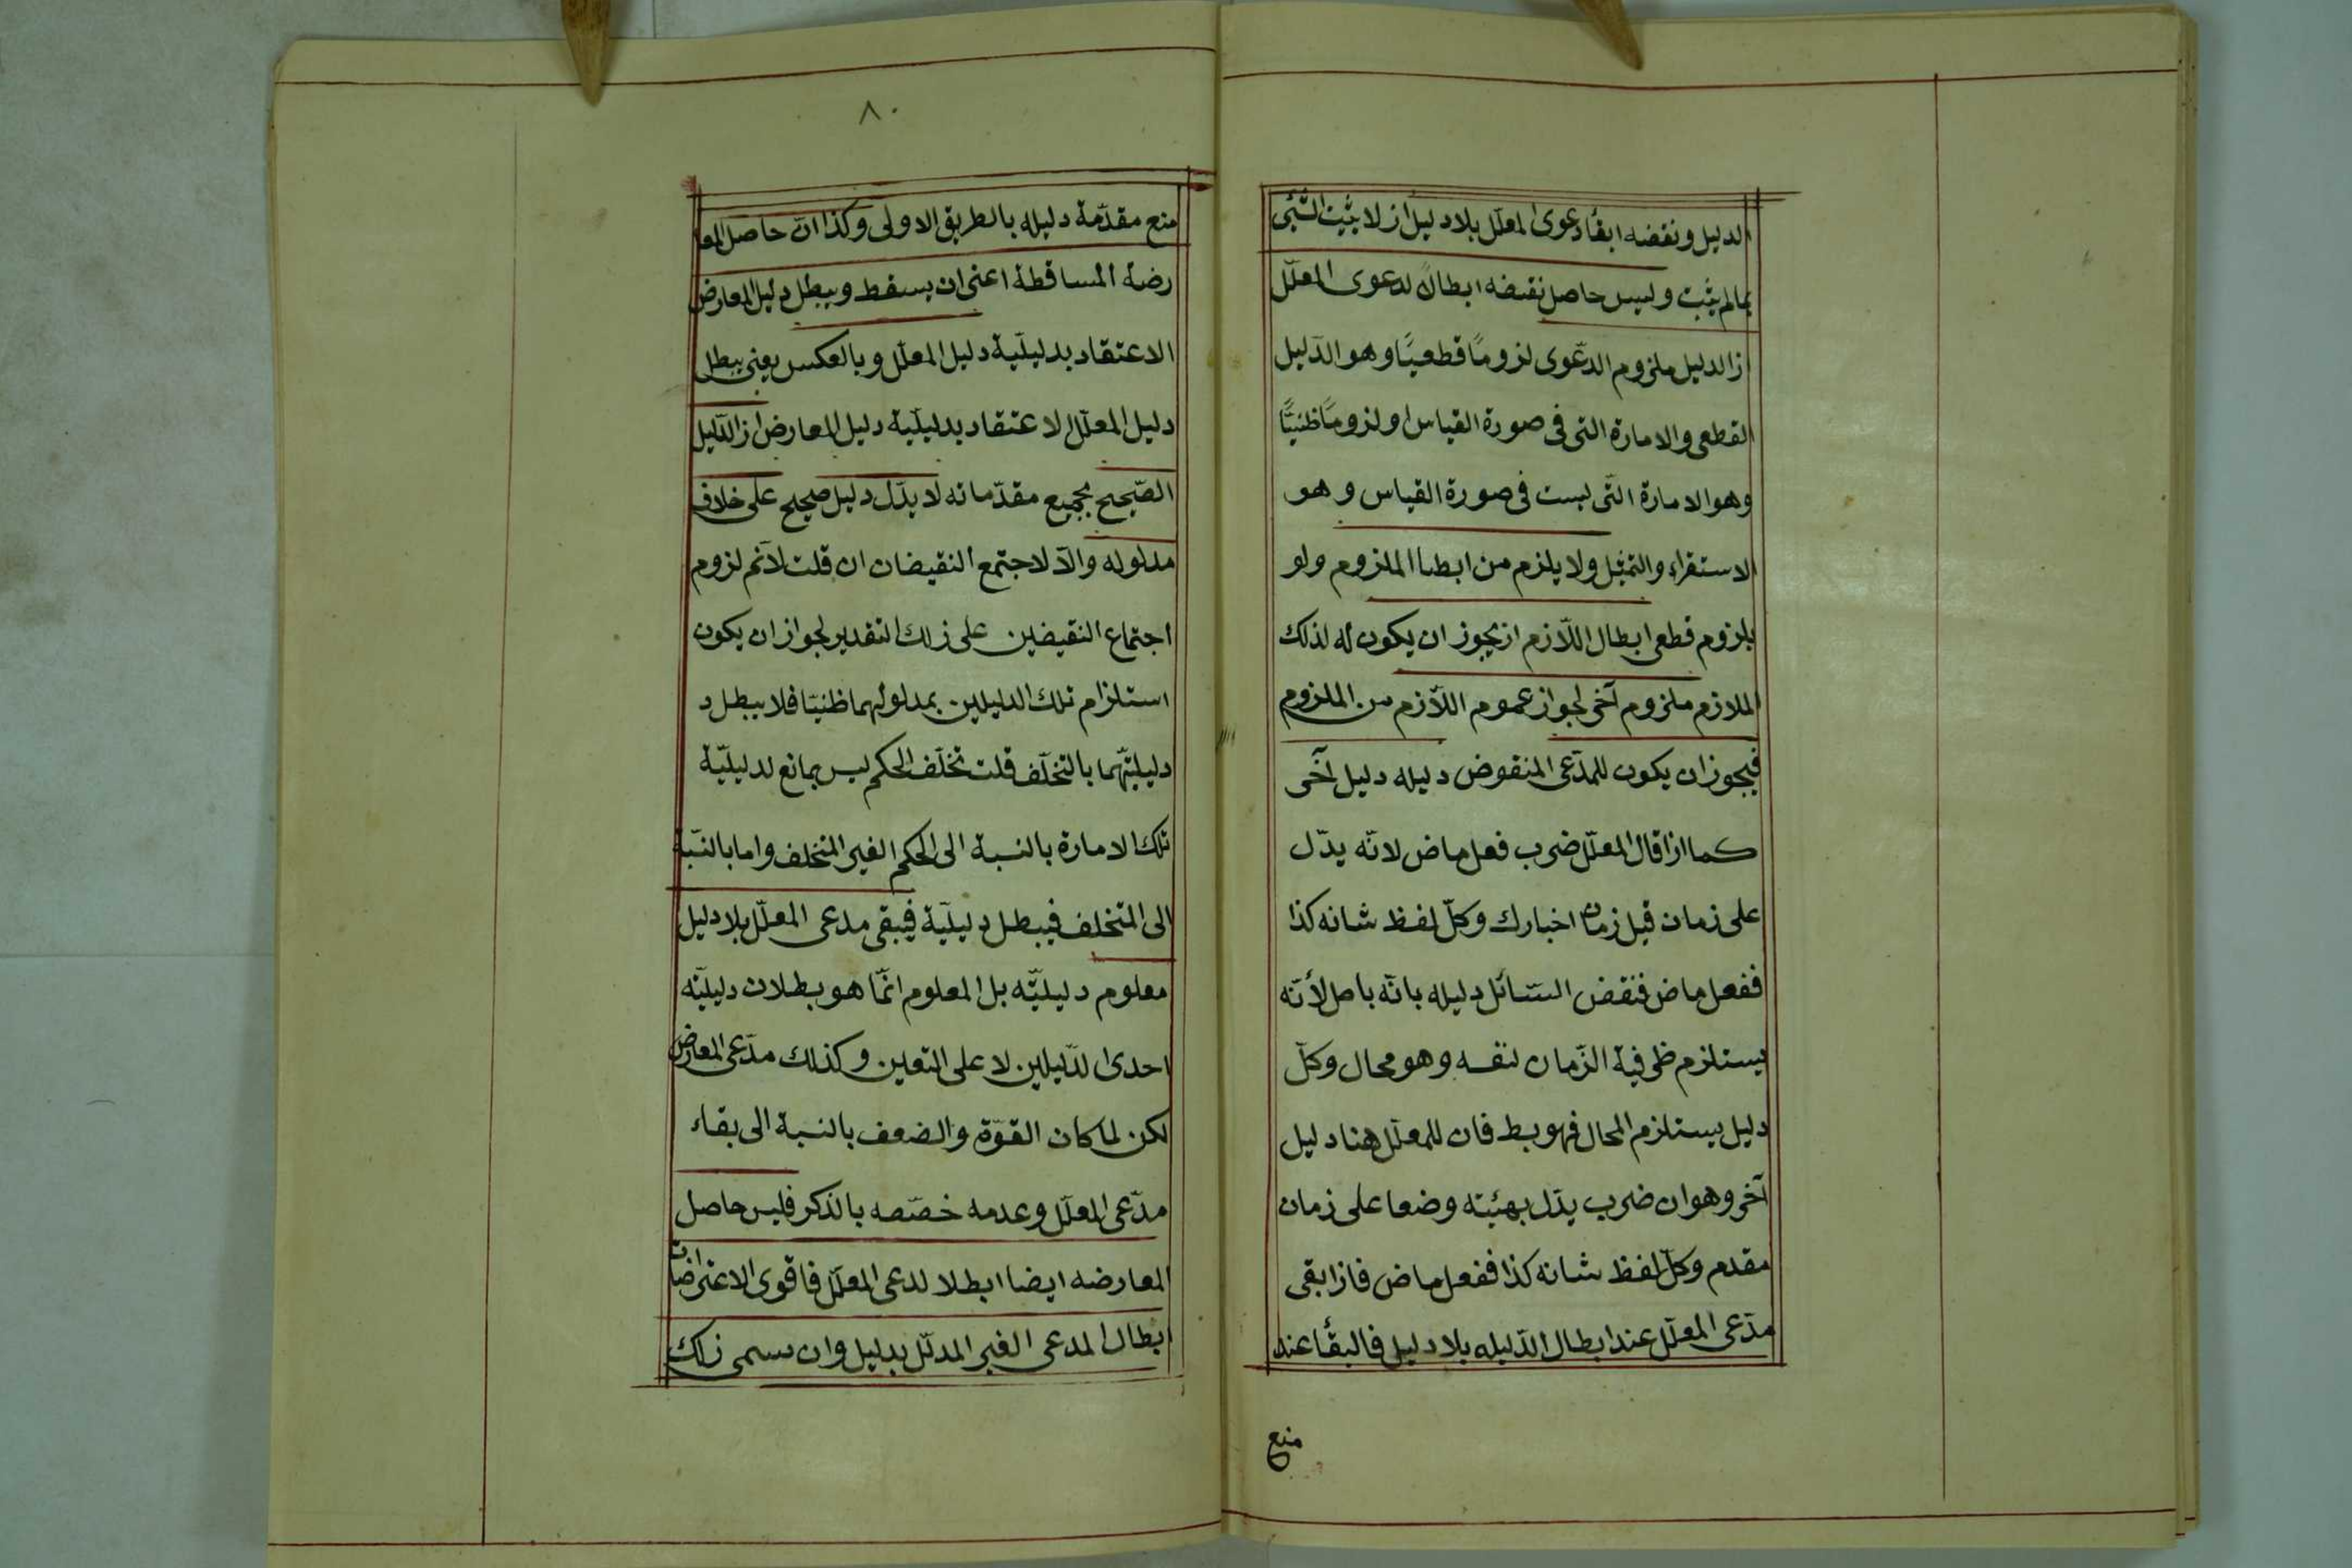 الدليل ونقضه ابقأ دعوى المعلّل بلا دليل از لا يثبت الشّئى
بمالم يثبت وليس حاصل نقضه ابطالاً لدعوى المعلّل
از الدليل ملزوم الدّعوى لزومًا قطعيّا وهو الدّليل
القطعى والامارة التى فى صورة القياس او لزومًا ظنيّا
وهو الامارة التّى ليست فى صورة القياس وهو
الاستقراء والتمثيل ولا يلزم من ابطا الملزوم ولو
بلزوم قطعى ابطال اللّازم از يجوز ان يكون له لذلك
الملازم ملزوم آخر لجواز عموم اللّازم من الملزوم
فيجوز ان يكون للمدّعى المنقوض دليله دليل آخر
كما ازا قال المعلّل ضرب فعل ماض لانّه يدّل
على زمان قبل زمان اخبارك وكلّ لفظ شانه كذا
ففعل ماض فنقض السّائل دليله بانّه باصل لأنّه
يستلزم ظرفية الزّمان لنفسه وهو محال وكلّ
دليل يستلزم المحال فهو بط فان للمعلّل هنا دليل
آخر وهو ان ضرب يدّل بهيئته وضعا على زمان
مقدم وكلّ لفظ شانه كذا ففعل ماض فازا بقى
مدّعى المعلّل عند ابطال الدّليله بلا دليل فالبقأ عند
منع
٨٠
منع مقدّمة دليله بالطريق الاولى وكذا انّ حاصل المعا
رضة المساقطة اعنى ان يسقط ويبطل دليل المعارض
الاعتقاد بدليليّة دليل المعلّل وبالعكس يعنى يبطل
دليل المعلّل الاعتقاد بدليليّة دليل المعارض از الدّليل
الصّحيح بجميع مقدّماته لا يدّل دليل صحيح على خلاف
مدلوله والاّ لاجتمع النقيضان ان قلت لانّم لزوم
اجتماع النقيضين على زلك التقدير لجواز ان يكون
استلزام تلك الدليلين بمدلولهما ظنيّا فلا يبطل د
دليليّتهما بالتخلّف قلت تخلّف الحكم ليس بمانع لدليليّة
تلك الامارة بالنسبة الى الحكم الغير المتخلف واما بالنّسبة
الى المتخلف فيبطل دليليّة فيبقى مدعى المعلّل بلا دليل
معلوم دليليّه بل المعلوم انّما هو بطلان دليليّه
احدى الدّليلين لا على التعين وكذلك مدّعى المعارض
لكن لما كان القوّة والضعف بالنسبة الى بقاء
مدّعى المعلّل وعدمه خصّصه بالذكر فليس حاصل
المعارضه ايضا ابطلا لدعى المعلّل فاقوى الاعتراضات
ابطال المدعى الغير المدلّل بدليل وان سمى زلك